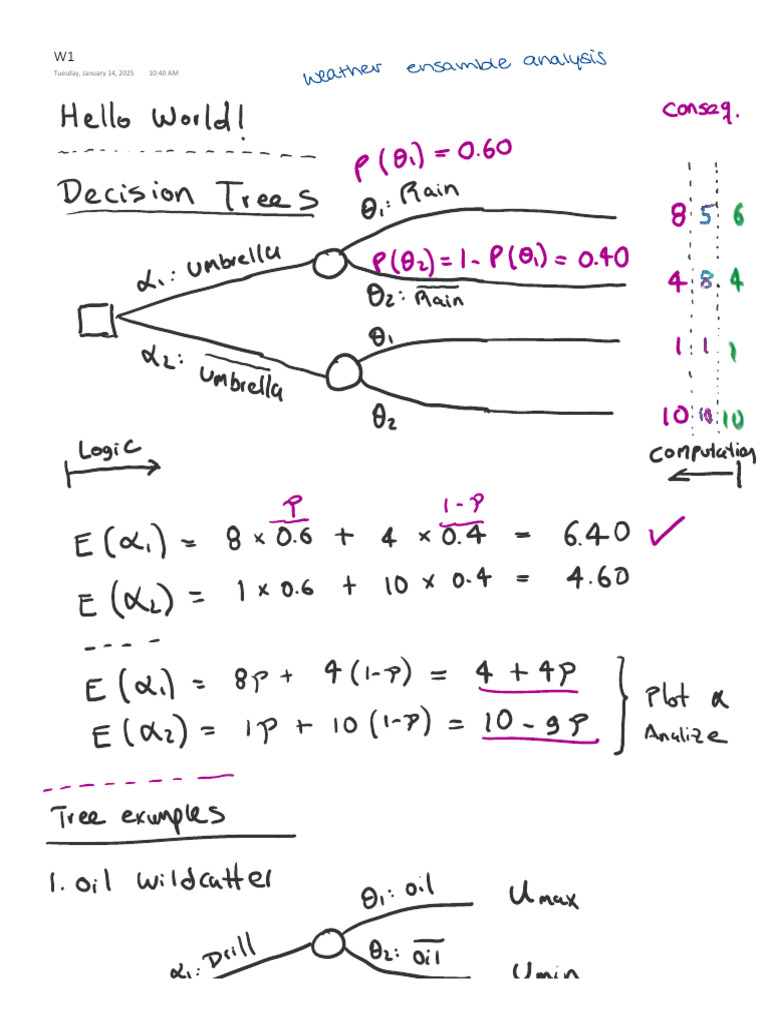 W1
Tuesday, January 14, 2025 10:40 AM
weather ensamble analysis
Hello World!
Conseq.
P(θ₁) = 0.60
Decision Trees
θ₁: Rain
8 5 6
α₁: Umbrella
P(θ₂) = 1 - P(θ₁) = 0.40
θ₂: R̅a̅i̅n̅
4 8 4
θ₁
1 1 1
α₂: U̅m̅b̅r̅e̅l̅l̅a̅
θ₂
10 10 10
Logic
Computation
P 1-P
E(α₁) = 8 × 0.6 + 4 × 0.4 = 6.40 ✓
E(α₂) = 1 × 0.6 + 10 × 0.4 = 4.60
E(α₁) = 8p + 4(1-p) = 4 + 4p
E(α₂) = 1p + 10(1-p) = 10 - 9p
Plot &
Analize
Tree examples
1. oil wildcatter
θ₁: oil Umax
α₁: Drill
θ₂: o̅i̅l̅ Umin